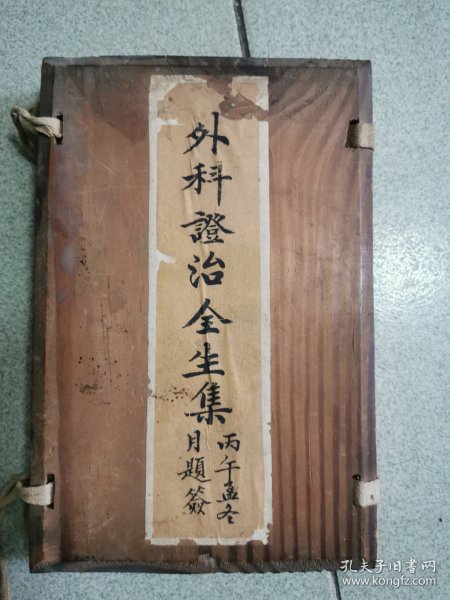 外科證治全生集
丙午孟冬
月題簽
孔夫子旧书网
www.kongfz.com